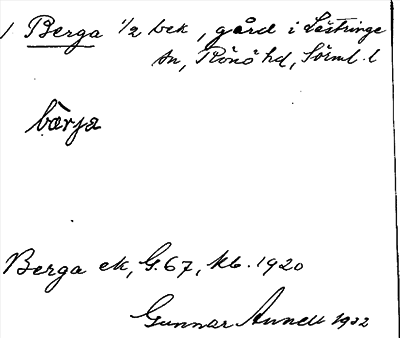 1 Berga 1/2 bek, gård i Lästringe
sn, Rönö hd, Sörml. l
bærja
Berga ek, G. 67, kb. 1920
Gunnar Annell 1932